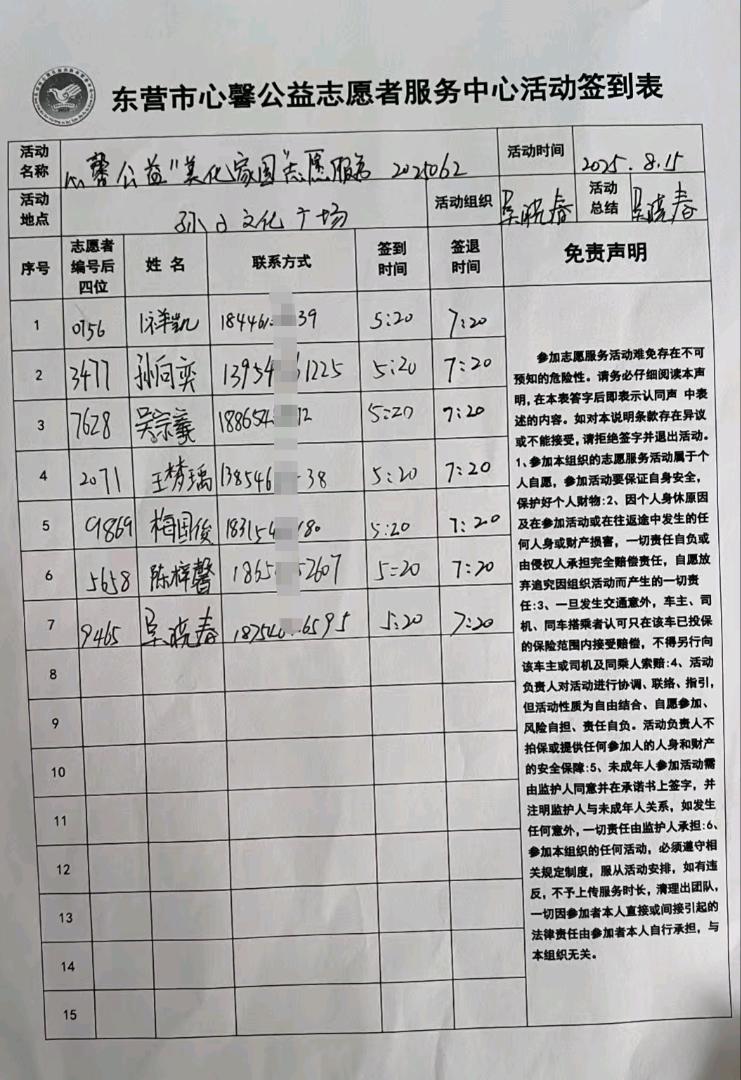 东营市心馨公益志愿者服务中心活动签到表
活动名称 心馨公益"美化家园"志愿服务 2025062 活动时间 2025.8.15
活动地点 孙子文化广场 活动组织 吴晓春 活动总结 吴晓春
序号 志愿者编号后四位 姓名 联系方式 签到时间 签退时间 免责声明
1 0756 祥凯 184461 39 5:20 7:20
2 3477 孙向奕 13954 1225 5:20 7:20
3 7628 吴宗羲 188654 2 5:20 7:20
4 2071 王梦瑀 138546 38 5:20 7:20
5 9869 梅国俊 183154 80 5:20 7:20
6 5658 陈梓馨 1865 2607 5:20 7:20
7 9465 吴晓春 187540 6595 5:20 7:20
8
9
10
11
12
13
14
15
参加志愿服务活动难免存在不可
预知的危险性。请务必仔细阅读本声
明,在本表签字后即表示认同声 中表
述的内容。如对本说明条款存在异议
或不能接受,请拒绝签字并退出活动。
1、参加本组织的志愿服务活动属于个
人自愿,参加活动要保证自身安全,
保护好个人财物:2、因个人身休原因
及在参加活动或在往返途中发生的任
何人身或财产损害,一切责任自负或
由侵权人承担完全赔偿责任,自愿放
弃追究因组织活动而产生的一切责
任:3、一旦发生交通意外,车主、司
机、同车搭乘者认可只在该车已投保
的保险范围内接受赔偿,不得另行向
该车主或司机及同乘人索赔:4、活动
负责人对活动进行协调、联络、指引,
但活动性质为自由结合、自愿参加、
风险自担、责任自负。活动负责人不
拍保或提供任何参加人的人身和财产
的安全保障:5、未成年人参加活动需
由监护人同意并在承诺书上签字,并
注明监护人与未成年人关系,如发生
任何意外,一切责任由监护人承担:6、
参加本组织的任何活动,必须遵守相
关规定制度,服从活动安排,如有违
反,不予上传服务时长,清理出团队,
一切因参加者本人直接或间接引起的
法律责任由参加者本人自行承担,与
本组织无关。